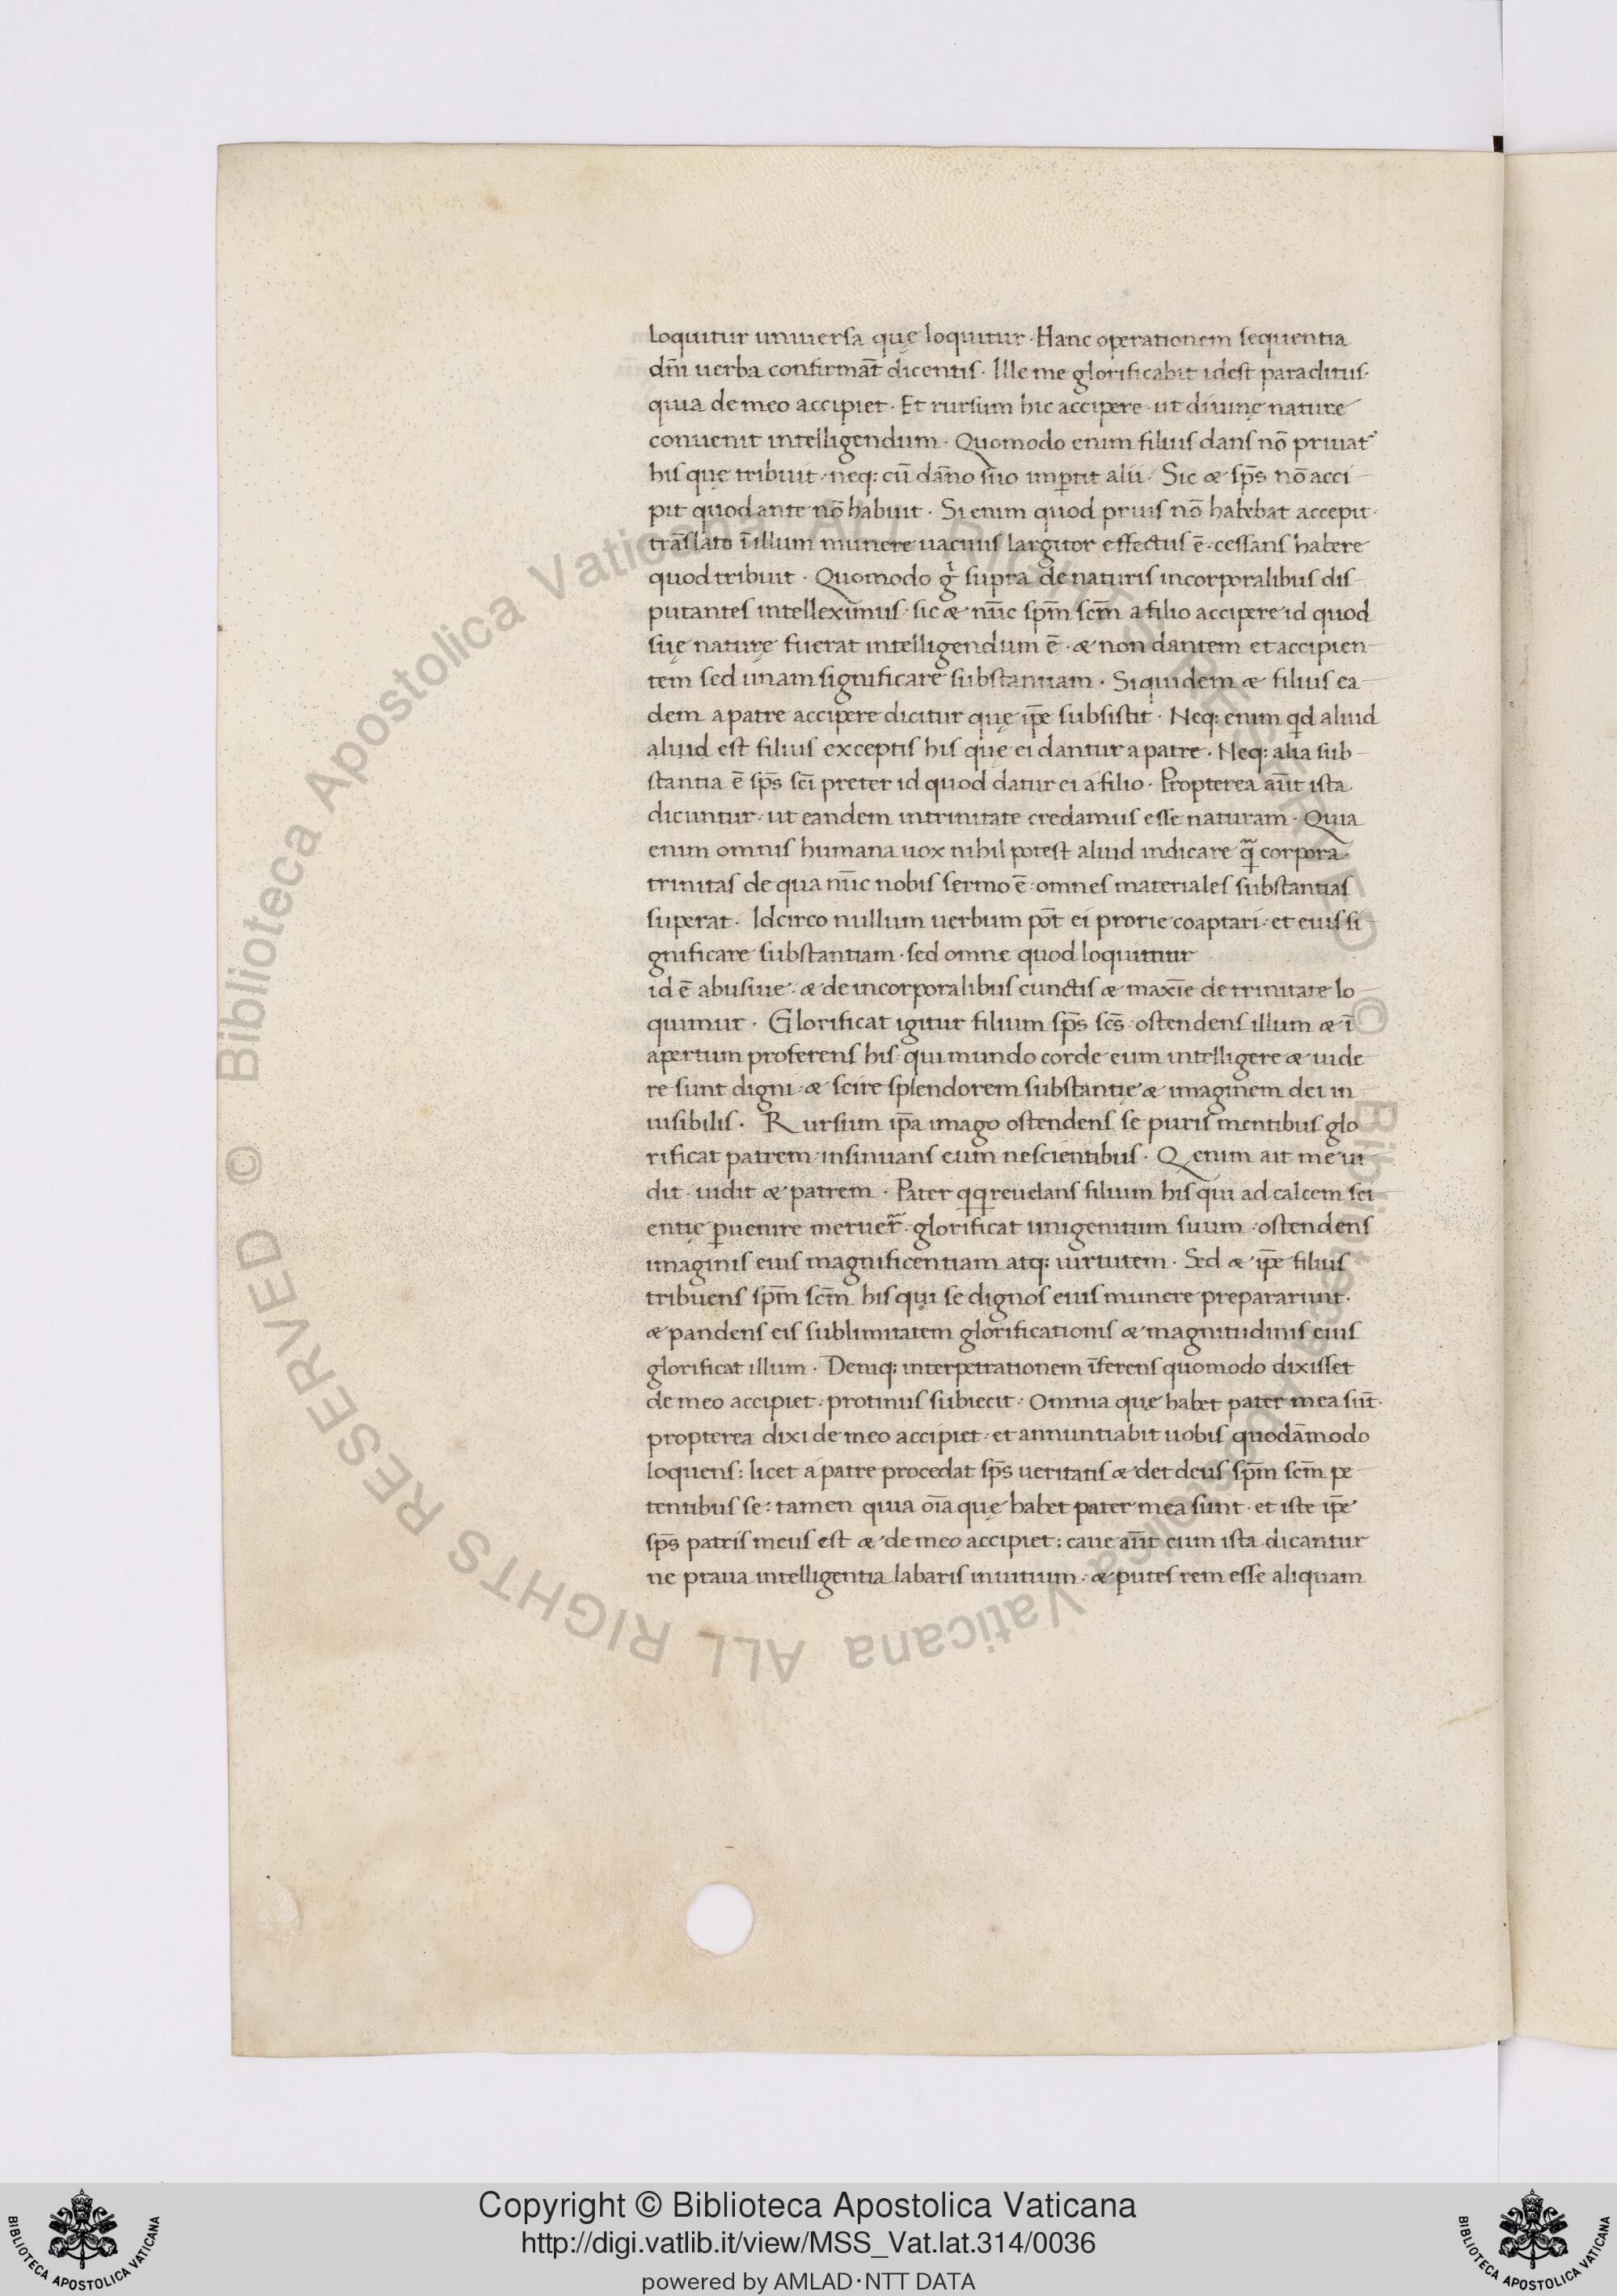 loquitur uniuersa quę loquitur · Hanc operationem sequentia
dñi uerba confirmãt dicentis · Ille me glorificabit idest paraclitus ·
quia de meo accipiet · Et rursum hic accipere · ut diuinę nature
conuenit intelligendum · Quomodo enim filius dans nõ priuat᷒
his quę tribuit · neq; cũ dãno suo imꝑtit alii · Sic æ sp̃s nõ acci
pit quod ante nõ habuit · Si enim quod prius nõ habebat accepit ·
trãslato ĩ illum munere uacuus largitor effectus ẽ · cessans habere
quod tribuit · Quomodo gͥ supra de naturis incorporalibus dis
putantes intelleximus · sic æ nũc sp̃m scm̃ a filio accipere id quod
suę naturę fuerat intelligendum ẽ · æ non dantem et accipien
tem sed unam significare substantiam · Siquidem æ filius ea
dem a patre accipere dicitur quę ip̃e subsistit · Neq; enim qd aliud
aliud est filius exceptis his quę ei dantur a patre · Neq; alia sub
stantia ẽ sp̃s scĩ preter id quod datur ei a filio · Propterea aũt ista
dicuntur · ut eandem in trinitate credamus esse naturam · Quia
enim omnis humana uox nihil potest aliud indicare q̃ corpora ·
trinitas de qua nũc nobis sermo ẽ · omnes materiales substantias
superat · Idcirco nullum uerbum põt ei prorie coaptari · et eius si
gnificare substantiam · sed omne quod loquimur
id ẽ abusiue · æ de incorporalibus cunctis æ maxĩe de trinitate lo
quimur · Glorificat igitur filium sp̃s scs̃ · ostendens illum æ ĩ
apertum proferens his qui mundo corde eum intelligere æ uide
re sunt digni · æ scire splendorem substantię æ imaginem dei in
uisibilis · Rursum ip̃a imago ostendens se puris mentibus glo
rificat patrem · insinuans eum nescientibus · Q enim ait me ui
dit · uidit æ patrem · Pater qq reuelans filium his qui ad calcem sci
entię ꝑuenire meruer̃ · glorificat unigenitum suum · ostendens
imaginis eius magnificentiam atq; uirtutem · Sed æ ip̃e filius
tribuens sp̃m scm̃ his qui se dignos eius munere prepararunt ·
æ pandens eis sublimitatem glorificationis æ magnitudinis eius
glorificat illum · Deniq; interpetrationem ĩferens quomodo dixisset
de meo accipiet · protinus subiecit · Omnia quę habet pater mea sũt ·
propterea dixi de meo accipiet · et annuntiabit uobis quodãmodo
loquens : licet a patre procedat sp̃s ueritatis æ det deus sp̃m scm̃ pe
tentibus se : tamen quia oĩa quę habet pater mea sunt · et iste ip̃e
sp̃s patris meus est æ de meo accipiet : caue aũt cum ista dicantur
ne praua intelligentia labaris in uitium · æ putes rem esse aliquam
© Biblioteca Apostolica Vaticana ALL RIGHTS RESERVED © Biblioteca Apostolica Vaticana ALL RIGHTS RESERVED
Copyright © Biblioteca Apostolica Vaticana
http://digi.vatlib.it/view/MSS_Vat.lat.314/0036
powered by AMLAD·NTT DATA
BIBLIOTECA APOSTOLICA VATICANA
BIBLIOTECA APOSTOLICA VATICANA